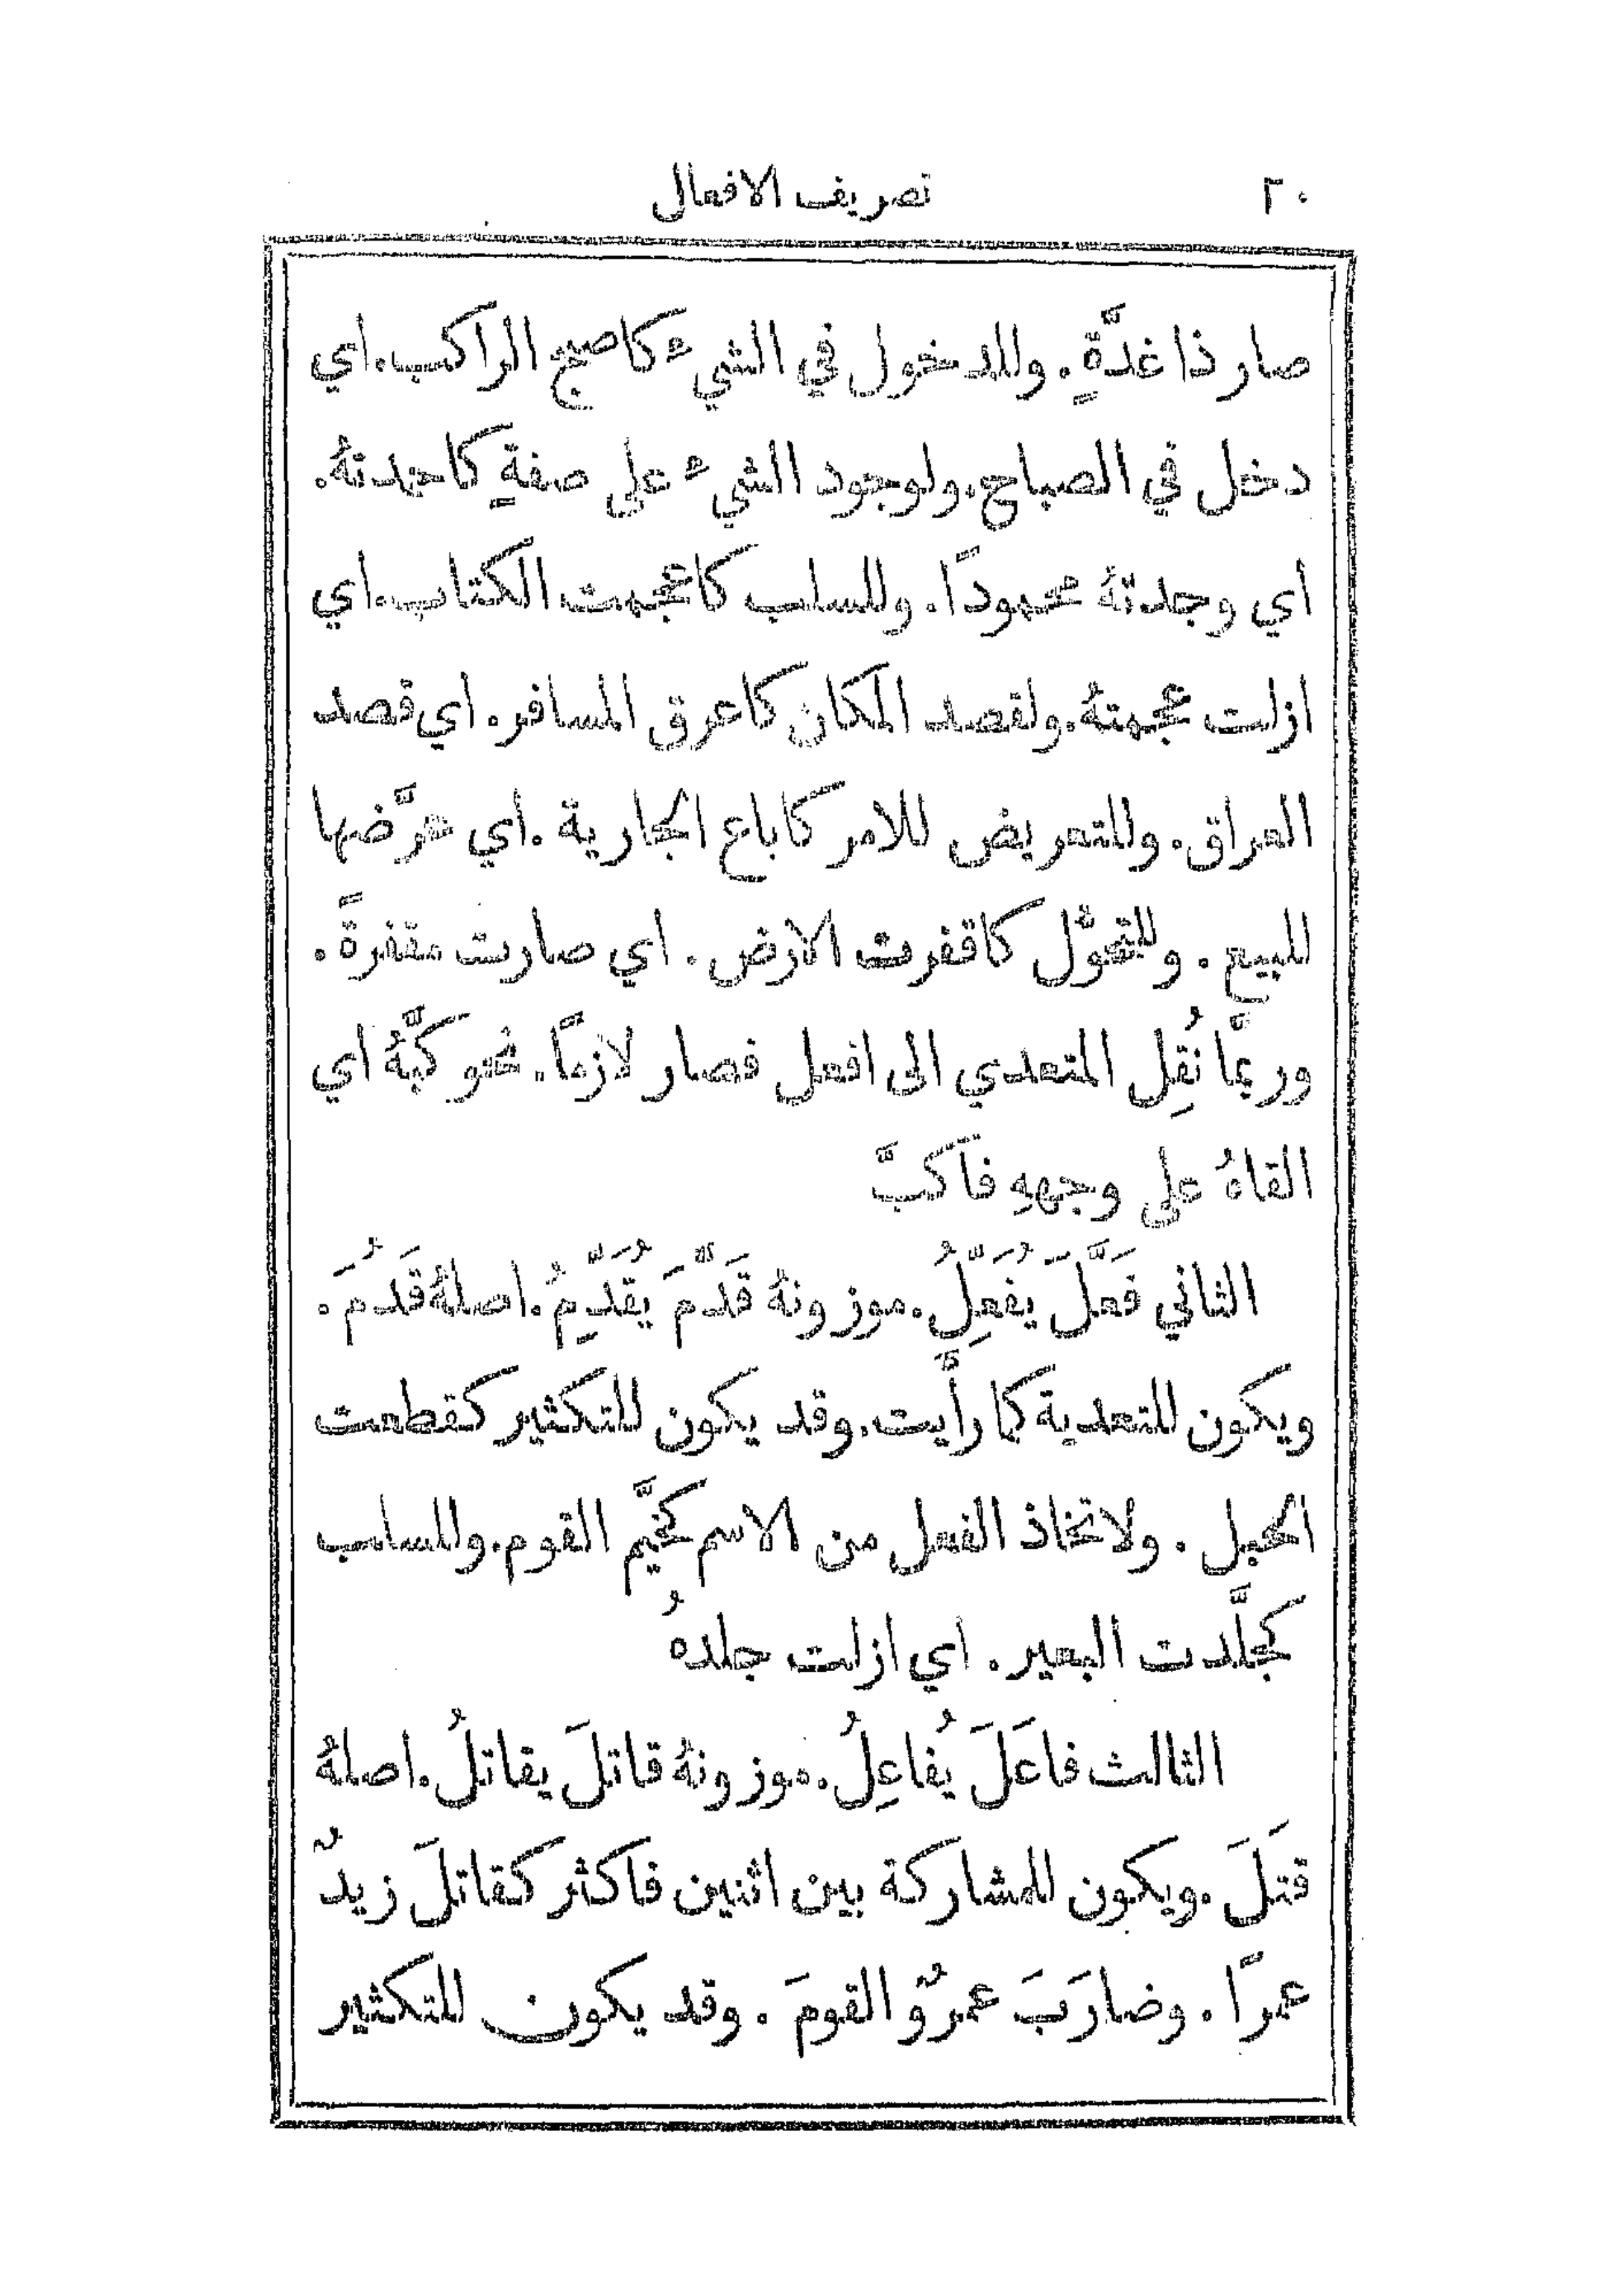 ٢٠ تصريف الافعال
صار ذا غدَّةٍ. وللدخول في الشيء كاصبح الراكب. اي
دخل في الصباح. ولوجود الشيء على صفةٍ كاحمدتهُ.
اي وجدتهُ محمودًا. وللسلب كاعجمت الكتاب. اي
ازلت عجمتهُ. ولقصد المكان كاعرق المسافر. اي قصد
العراق. وللتعريض للامر كاباع الجارية. اي عرَّضها
للبيع. وللتحوُّل كاقفرت الارض. اي صارت مقفرةً.
وربَّما نُقِل المتعدي الى افعل فصار لازمًا. نحو كبَّهُ اي
القاهُ على وجههِ فاكبَّ
الثاني فَعَّلَ يُفَعِّلُ. موزونهُ قَدَّمَ يُقَدِّمُ. اصلهُ قَدُمَ.
ويكون للتعدية كما رأَيت. وقد يكون للتكثير كقطَّعت
الحبل. ولاتخاذ الفعل من الاسم كخيَّم القوم. وللسلب
كجلَّدت البعير. اي ازلت جلدهُ
الثالث فاعَلَ يُفاعِلُ. موزونهُ قاتلَ يقاتلُ. اصلهُ
قتَلَ. ويكون للمشاركة بين اثنين فاكثر كقاتلَ زيدٌ
عمرًا. وضارَبَ عمرٌو القومَ. وقد يكون للتكثير